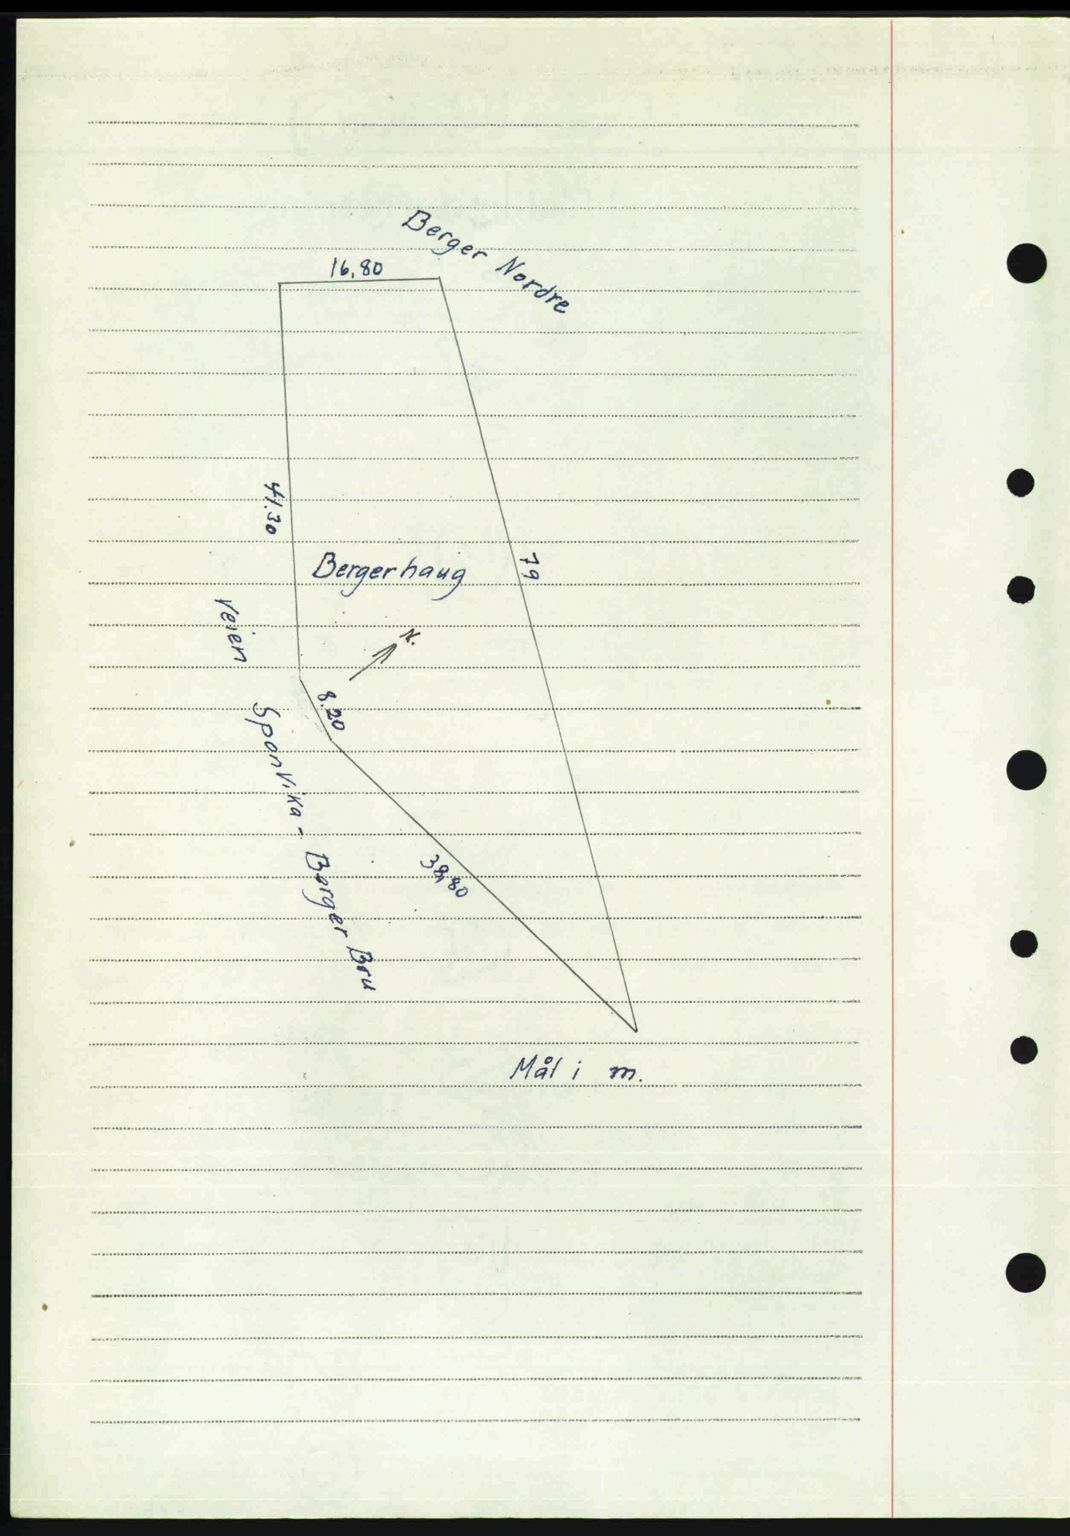 Berger Nordre
16,80
41.30
79
Bergerhaug
N.
8.20
Veien Sponvika - Berger Bru
38,80
Mål i m.